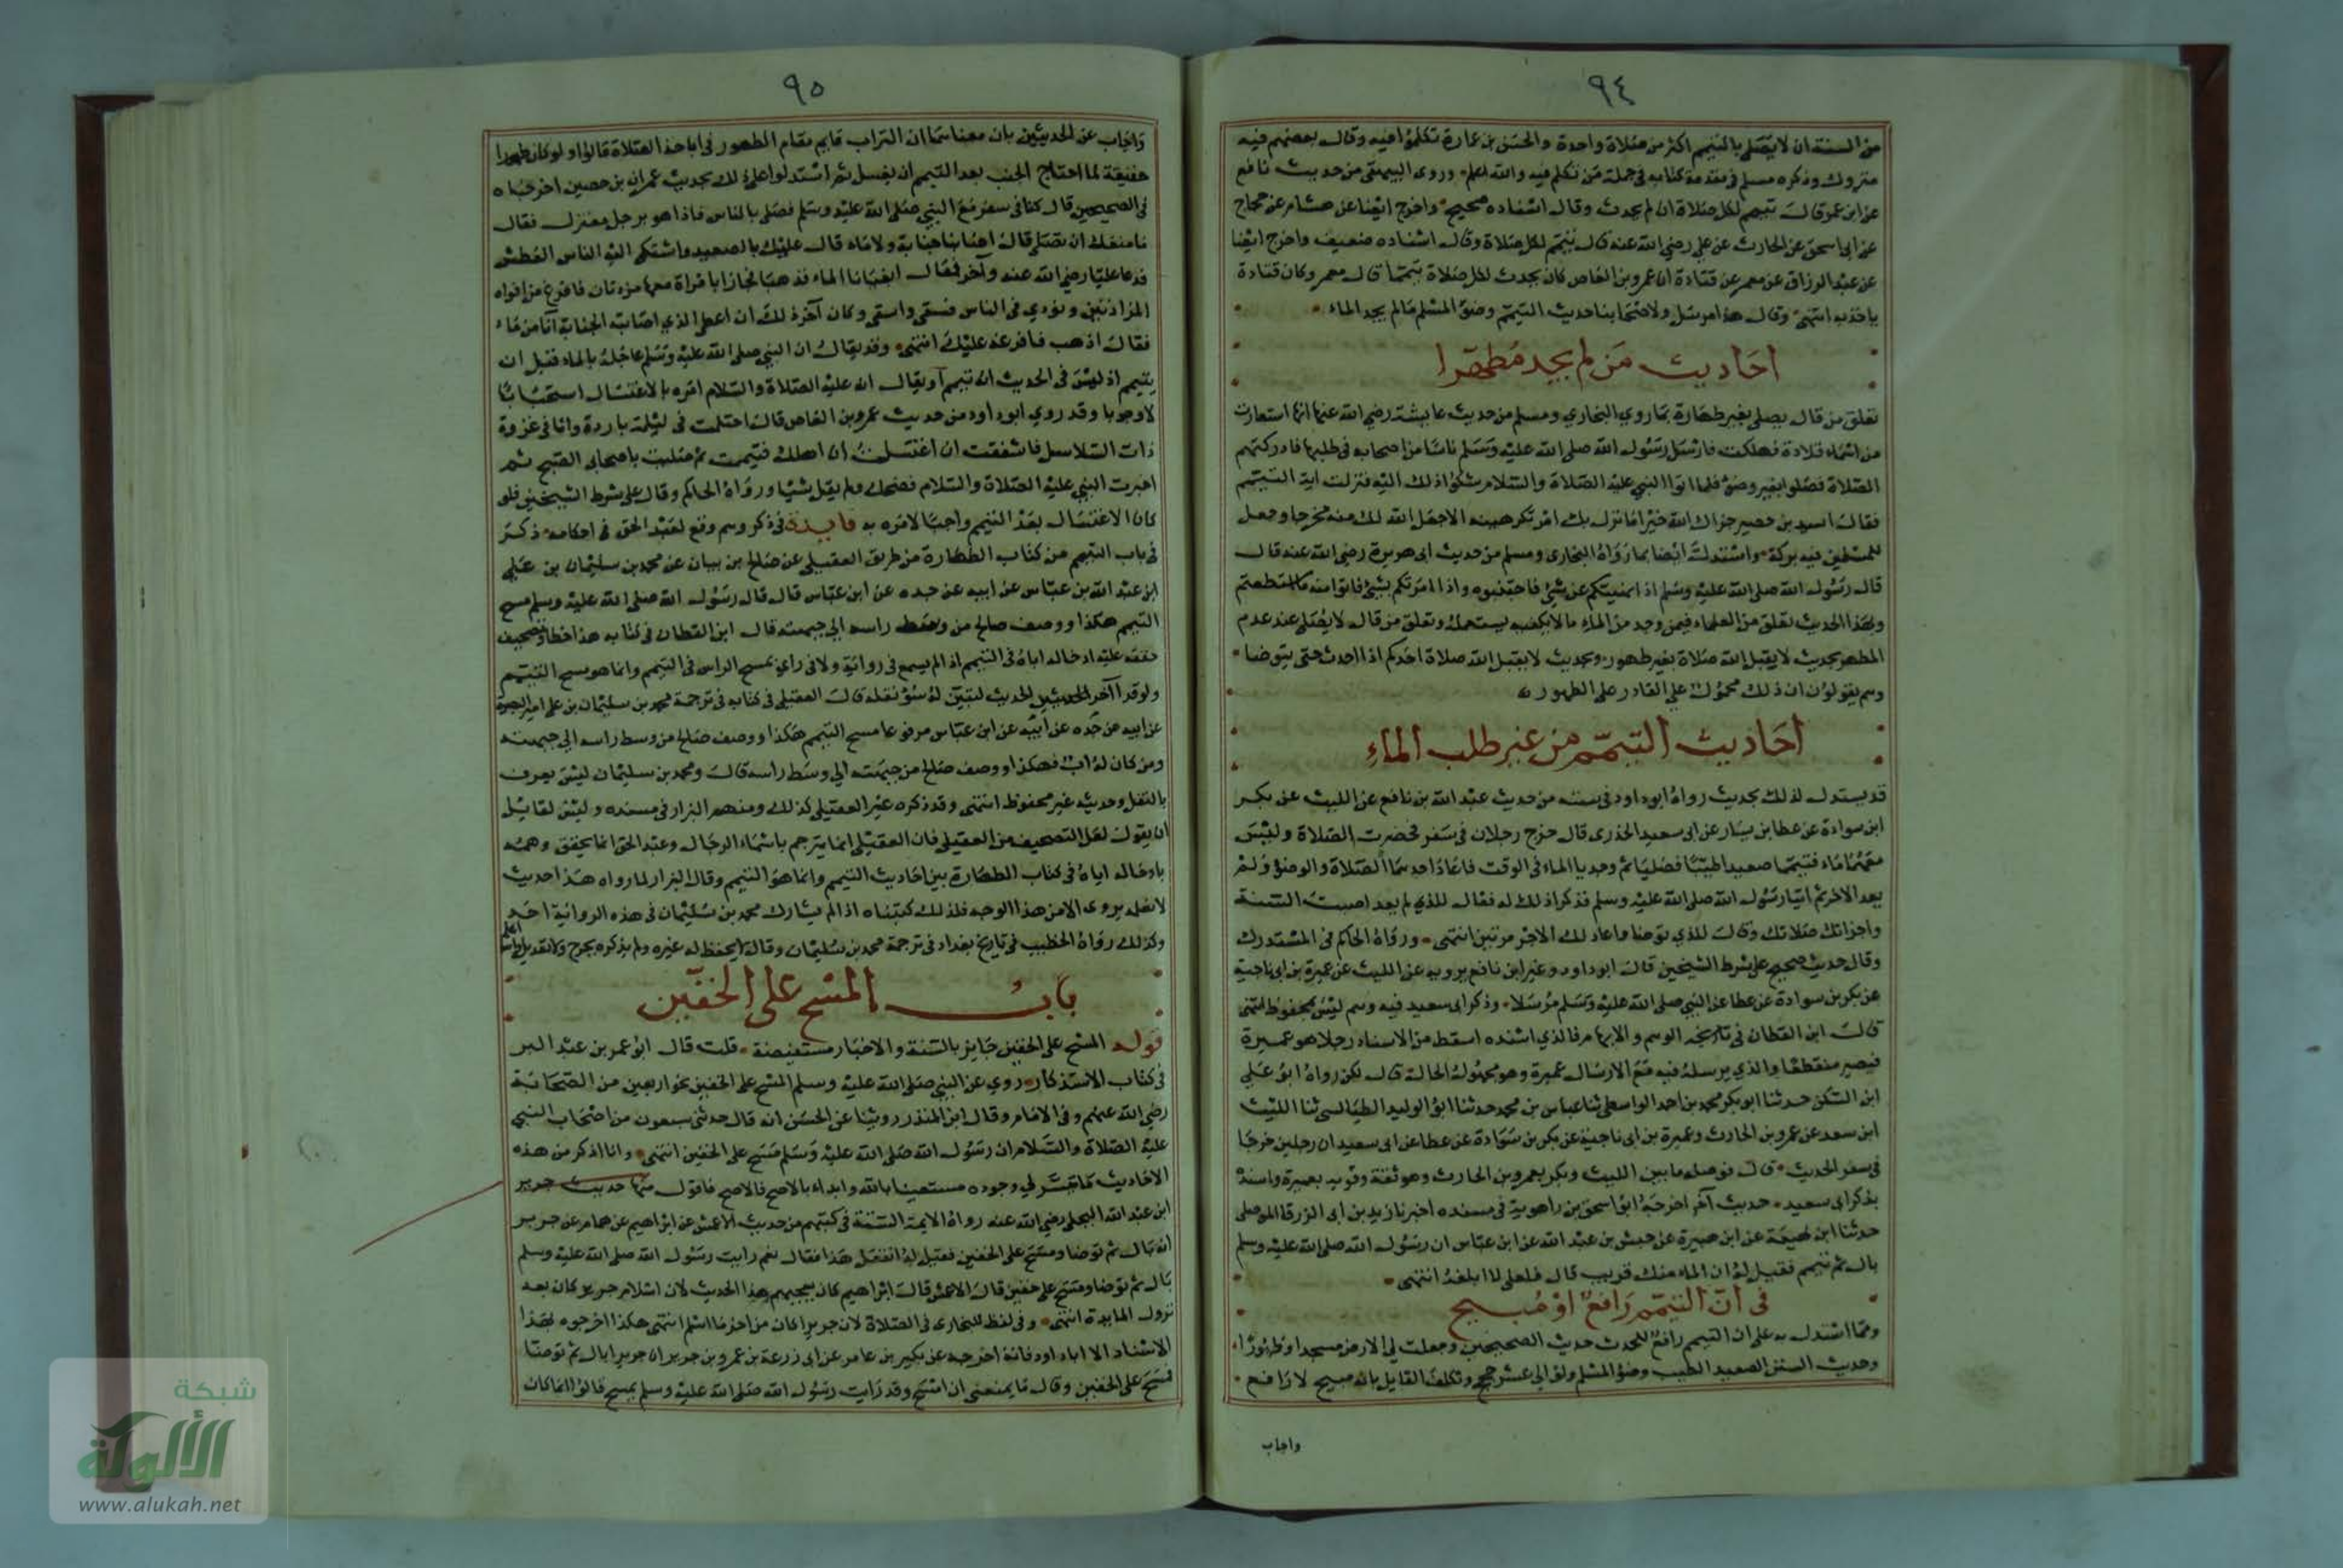 ٩٤
من السنة ان لا يصلى بالتيمم اكثر من صلاة واحدة والحسن بن عمارة تكلموا فيه وقال بعضهم فيه
متروك وذكره مسلم في مقدمة كتابه في جملة من تكلم فيه والله اعلم وروى البيهقى من حديث نافع
عن ابن عمر قال تيمم لكل صلاة ان لم يحدث وقال اسناده صحيح واخرج ايضا عن هشام عن حجاج
عن ابى اسحق عن الحارث عن على رضى الله عنه قال تيمم لكل صلاة وقال اسناده ضعيف واخرج ايضا
عن عبد الرزاق عن معمر عن قتادة ان عمرو بن العاص كان يحدث لكل صلاة تيمما قال معمر وكان قتادة
ياخذ به انتهى وقال هذا مرسل ولاصحابنا حديث التيمم وضوء المسلم ما لم يجد الماء
احاديث من لم يجد مطهرا
تعلق من قال يصلى بغير طهارة بما روى البخارى ومسلم من حديث عايشة رضى الله عنها انها استعارت
من اسماء قلادة فهلكت فارسل رسول الله صلى الله عليه وسلم ناسا من اصحابه في طلبها فادركتهم
الصلاة فصلوا بغير وضوء فلما اتوا النبي عليه الصلاة والسلام شكوا ذلك اليه فنزلت اية التيمم
فقال اسيد بن حصير جزاك الله خيرا ما نزل بك امر تكرهينه الا جعل الله لك منه مخرجا وجعل
للمسلمين فيه بركة واستدل ايضا بما رواه البخارى ومسلم من حديث ابى هريرة رضى الله عنه قال
قال رسول الله صلى الله عليه وسلم اذا نهيتكم عن شئ فاجتنبوه واذا امرتكم بشئ فاتوا منه ما استطعتم
وبهذا الحديث تعلق من العلماء فيمن وجد من الماء ما لا يكفيه يستعمله وتعلق من قال لا يصلى عند عدم
المطهر بحديث لا يقبل الله صلاة بغير طهور وبحديث لا يقبل الله صلاة احدكم اذا احدث حتى يتوضا
وهم يقولون ان ذلك محمول على القادر على الطهور
احاديث التيمم من غير طلب الماء
قد يستدل لذلك بحديث رواه ابو داود في سننه من حديث عبد الله بن نافع عن الليث عن بكر
ابن سوادة عن عطا بن يسار عن ابى سعيد الخدرى قال خرج رجلان في سفر فحضرت الصلاة وليس
معهما ماء فتيمما صعيدا طيبا فصليا ثم وجدا الماء في الوقت فاعاد احدهما الصلاة والوضوء ولم
يعد الاخر ثم اتيا رسول الله صلى الله عليه وسلم فذكرا ذلك له فقال للذي لم يعد اصبت السنة
واجزاتك صلاتك وقال للذي توضا واعاد لك الاجر مرتين انتهى ورواه الحاكم في المستدرك
وقال حديث صحيح على شرط الشيخين قال ابو داود وغير ابن نافع يرويه عن الليث عن عميرة بن ابى ناجية
عن بكر بن سوادة عن عطا عن النبي صلى الله عليه وسلم مرسلا وذكر ابى سعيد فيه وهم ليس بمحفوظ انتهى
قال ابن القطان في كتابه الوهم والايهام فالذي اسنده اسقط من الاسناد رجلا هو عميرة
فيصير منقطعا والذي يرسله فيه مع الارسال عميرة وهو مجهول الحال قال لكن رواه ابو على
ابن السكن حدثنا ابو بكر محمد بن احمد الواسطى ثنا عباس بن محمد حدثنا ابو الوليد الطيالسى ثنا الليث
ابن سعد عن عمرو بن الحارث وعميرة بن ابى ناجية عن بكر بن سوادة عن عطا عن ابى سعيد ان رجلين خرجا
في سفر الحديث قال فوصله ما بين الليث وبكر بعمرو بن الحارث وهو ثقة وقرنه بعميرة واسنده
بذكر ابى سعيد حديث آخر اخرجه ابو اسحق بن راهوية في مسنده اخبرنا زيد بن ابى الزرقا الموصلى
حدثنا ابن لهيعة عن ابن هبيرة عن حنش بن عبد الله عن ابن عباس ان رسول الله صلى الله عليه وسلم
بال ثم تيمم فقيل له ان الماء منك قريب قال فلعلى لا ابلغه انتهى
في ان التيمم رافع او مبيح
ومما استدل به على ان التيمم رافع للحدث حديث الصحيحين وجعلت لي الارض مسجدا وطهورا
وحديث السنن الصعيد الطيب وضوء المسلم ولو الى عشر حجج وتكلف القايل بانه مبيح لا رافع
واجاب
٩٥
واجاب عن الحديثين بان معناهما ان التراب قايم مقام الطهور في اباحة الصلاة قالوا ولو كان طهورا
حقيقة لما احتاج الجنب بعد التيمم ان يغسل ثم استدلوا على ذلك بحديث عمران بن حصين اخرجاه
في الصحيحين قال كنا في سفر مع النبي صلى الله عليه وسلم فصلى بالناس فاذا هو برجل معتزل فقال
ما منعك ان تصلى قال اصابتنا جنابة ولا ماء قال عليك بالصعيد واشتكى اليه الناس العطش
فدعا عليا رضى الله عنه وآخر فقال ابغيانا الماء فذهبا فجازا بامراة معها مزدتان فافرغ من افواه
المزادتين ونودي في الناس فسقى واستقى وكان آخر ذلك ان اعطى الذي اصابته الجنابة انا من ماء
فقال اذهب فافرغه عليك انتهى وقد يقال ان النبي صلى الله عليه وسلم عاجله بالماء قبل ان
يتيمم اذ ليس في الحديث انه تيمم او يقال انه عليه الصلاة والسلام امره بالاغتسال استحبابا
لا وجوبا وقد روي ابو داود من حديث عمرو بن العاص قال احتلمت في ليلة باردة وانا في غزوة
ذات السلاسل فاشفقت ان اغتسلت ان اهلك فتيممت ثم صليت باصحابى الصبح ثم
اخبرت النبي عليه الصلاة والسلام فضحك ولم يقل شيا ورواه الحاكم وقال على شرط الشيخين فلو
كان الاغتسال بعد التيمم واجبا لامره به فايدة في ذكر وهم وقع لعبد الحق في احكامه ذكر
في باب التيمم من كتاب الطهارة من طريق العقيلى عن صالح بن بيان عن محمد بن سليمان بن على
ابن عبد الله بن عباس عن ابيه عن جده عن ابن عباس قال قال رسول الله صلى الله عليه وسلم مسح
التيمم هكذا ووصف صالح من وسط راسه الى جبهته قال ابن القطان في كتابه هذا خطا وتصحيف
حققه عليه ادخاله اياه في التيمم اذ لم يسمع في رواية ولا في راي بمسح الراس في التيمم وانما هو يمسح التيتيم
ولو قرا آخر الحديث لتبين له سوء نقله قال العقيلى في كتابه في ترجمة محمد بن سليمان بن على امير البصرة
عن ابيه عن جده عن ابيه عن ابن عباس مرفوعا مسح التيمم هكذا ووصف صالح من وسط راسه الى جبهته
ومن كان له اب فهكذا ووصف صالح من جبهته الى وسط راسه قال ومحمد بن سليمان ليس يعرف
بالنقل وحديثه غير محفوظ انتهى وقد ذكره غير العقيلى كذلك ومنهم البزار في مسنده وليس لقايل
ان يقول لعل التصحيف من العقيلى فان العقيلى انما يترجم باسماء الرجال وعبد الحق انما تحقق وهمه
بادخاله اياه في كتاب الطهارة بين احاديث التيمم وانما هو التيمم وقال البزار لما رواه هذا حديث
لا نعلمه يروى الا من هذا الوجه فلذلك كتبناه اذ لم يشارك محمد بن سليمان في هذه الرواية احد
وكذلك رواه الخطيب في تاريخ بغداد في ترجمة محمد بن سليمان وقال لم يحفظ له غيره ولم يذكره بجرح ولا تعديل والله اعلم
باب المسح على الخفين
قوله المسح على الخفين جايز بالسنة والاخبار مستفيضة قلت قال ابو عمر بن عبد البر
في كتاب الاستذكار روي عن النبي صلى الله عليه وسلم المسح على الخفين نحو اربعين من الصحابة
رضى الله عنهم وفى الامام وقال ابن المنذر روينا عن الحسن انه قال حدثنى سبعون من اصحاب النبي
عليه الصلاة والسلام ان رسول الله صلى الله عليه وسلم مسح على الخفين انتهى وانا اذكر من هذه
الاحاديث ما تيسر لي وجوده مستعينا بالله وابداء بالاصح فالاصح فاقول منها حديث جرير
ابن عبد الله البجلى رضى الله عنه رواه الايمة الستة في كتبهم من حديث الاعمش عن ابراهيم عن همام عن جرير
انه بال ثم توضا ومسح على الخفين فقيل له اتفعل هذا فقال نعم رايت رسول الله صلى الله عليه وسلم
بال ثم توضا ومسح على خفيه قال الاعمش قال ابراهيم كان يعجبهم هذا الحديث لان اسلام جرير كان بعد
نزول المايدة انتهى وفى لفظ للبخارى في الصلاة لان جريرا كان من اخر ما اسلم انتهى هكذا اخرجوه بهذا
الاسناد الا ابا داود فانه اخرجه عن بكير بن عامر عن ابى زرعة بن عمرو بن جرير ان جريرا بال ثم توضا
فمسح على الخفين وقال ما يمنعنى ان امسح وقد رايت رسول الله صلى الله عليه وسلم يمسح قالوا انما كان
شبكة
الألوكة
www.alukah.net